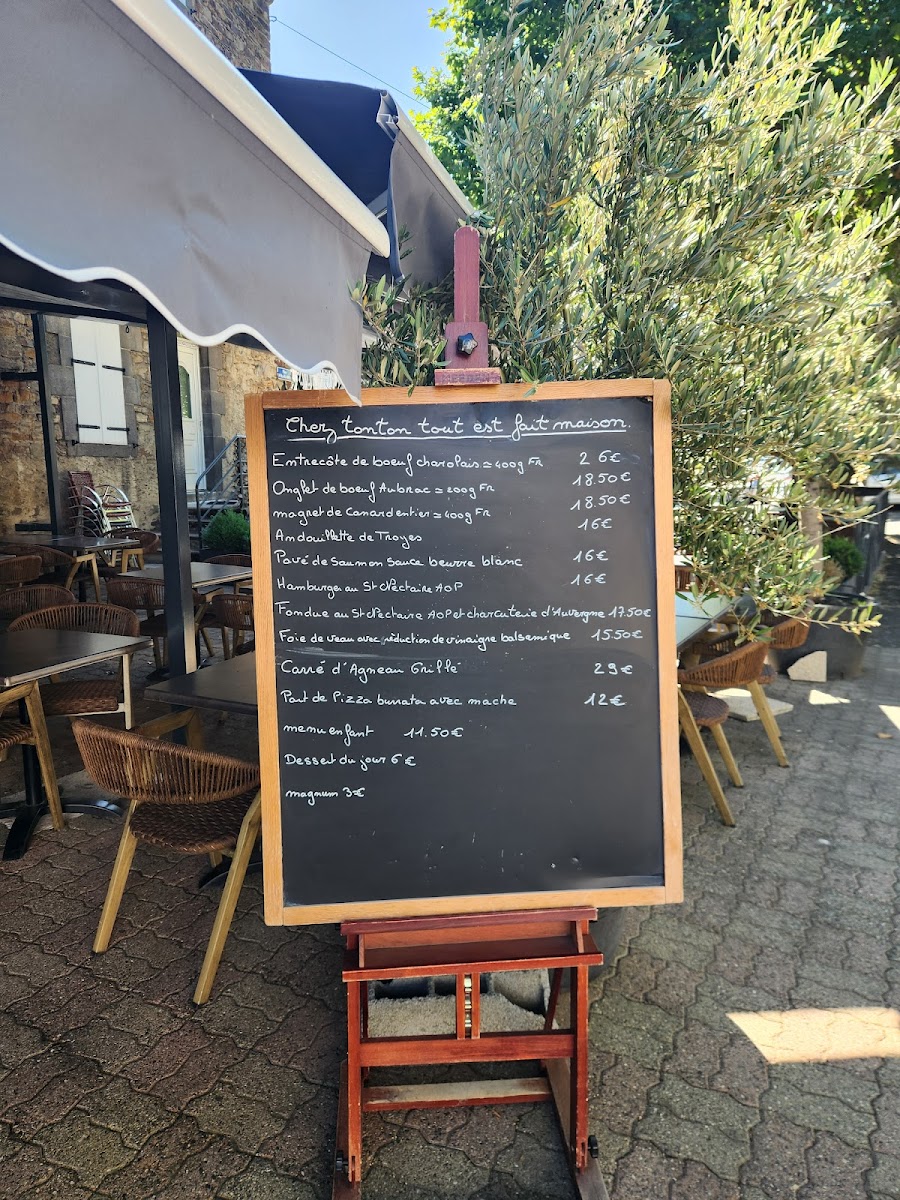 Chez tonton tout est fait maison.
Entrecôte de boeuf charolais ≃ 400g FR 26€
Onglet de boeuf Aubrac ≃ 200g FR 18.50€
magret de Canard entier ≃ 400g FR 18.50€
Andouillette de Troyes 16€
Pavé de Saumon Sauce beurre blanc 16€
Hamburger au St Néctaire AOP 16€
Fondue au St Néctaire AOP et charcuterie d'Auvergne 17.50€
Foie de veau avec réduction de vinaigre balsamique 15.50€
Carré d'Agneau Grillé 29€
Part de Pizza burrata avec mache 12€
menu enfant 11.50€
Dessert du jour 6€
magnum 3€